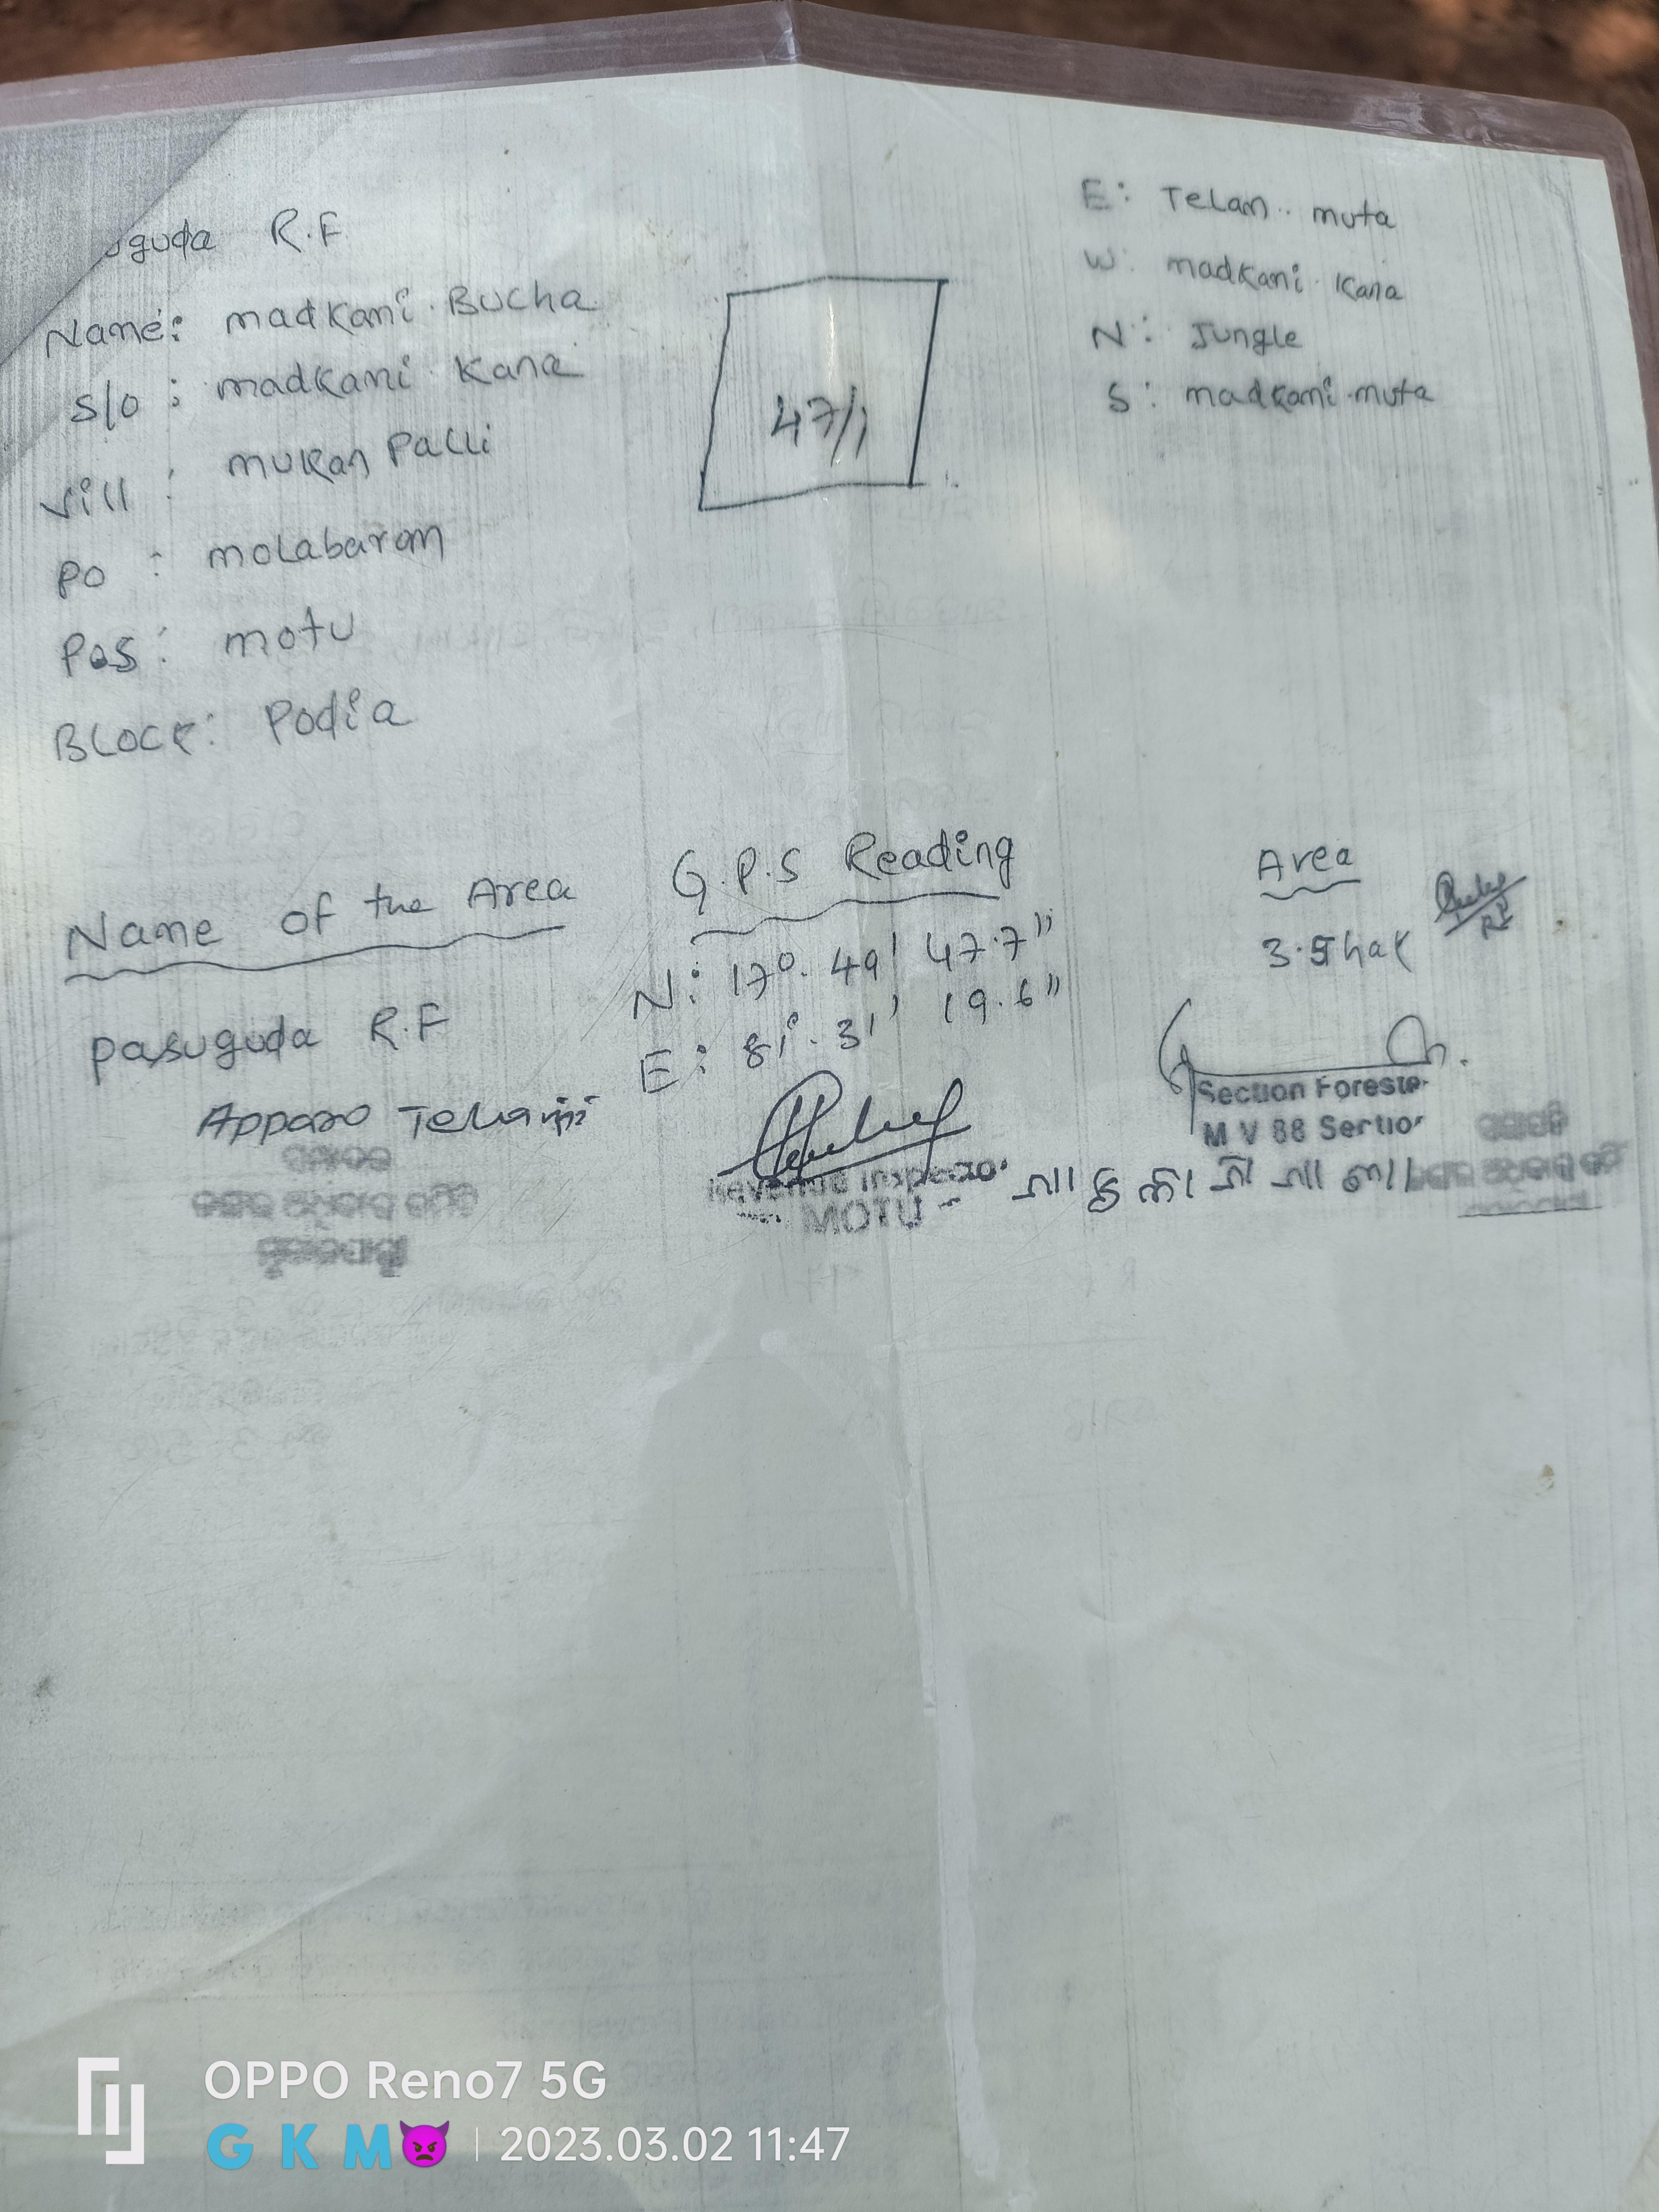 uguda R.F
Name: madkami Bucha
S/o : madkami Kana
vill : mukan Palli
Po : molabaram
Pos: motu
BLock: Podia
47/1
E: Telam muta
W: madkami Kana
N: Jungle
S: madkami muta
Name of the Area
pasuguda R.F
G.P.S Reading
N: 17°. 49' 47.7"
E: 81°. 31' 19.6"
Area
3.5 hak
RI
Apparao Telami
Revenue Inspector
MOTU
Section Foreste
M V 88 Sectio
ସଭାପତି
OPPO Reno7 5G
G K M👿 | 2023.03.02 11:47